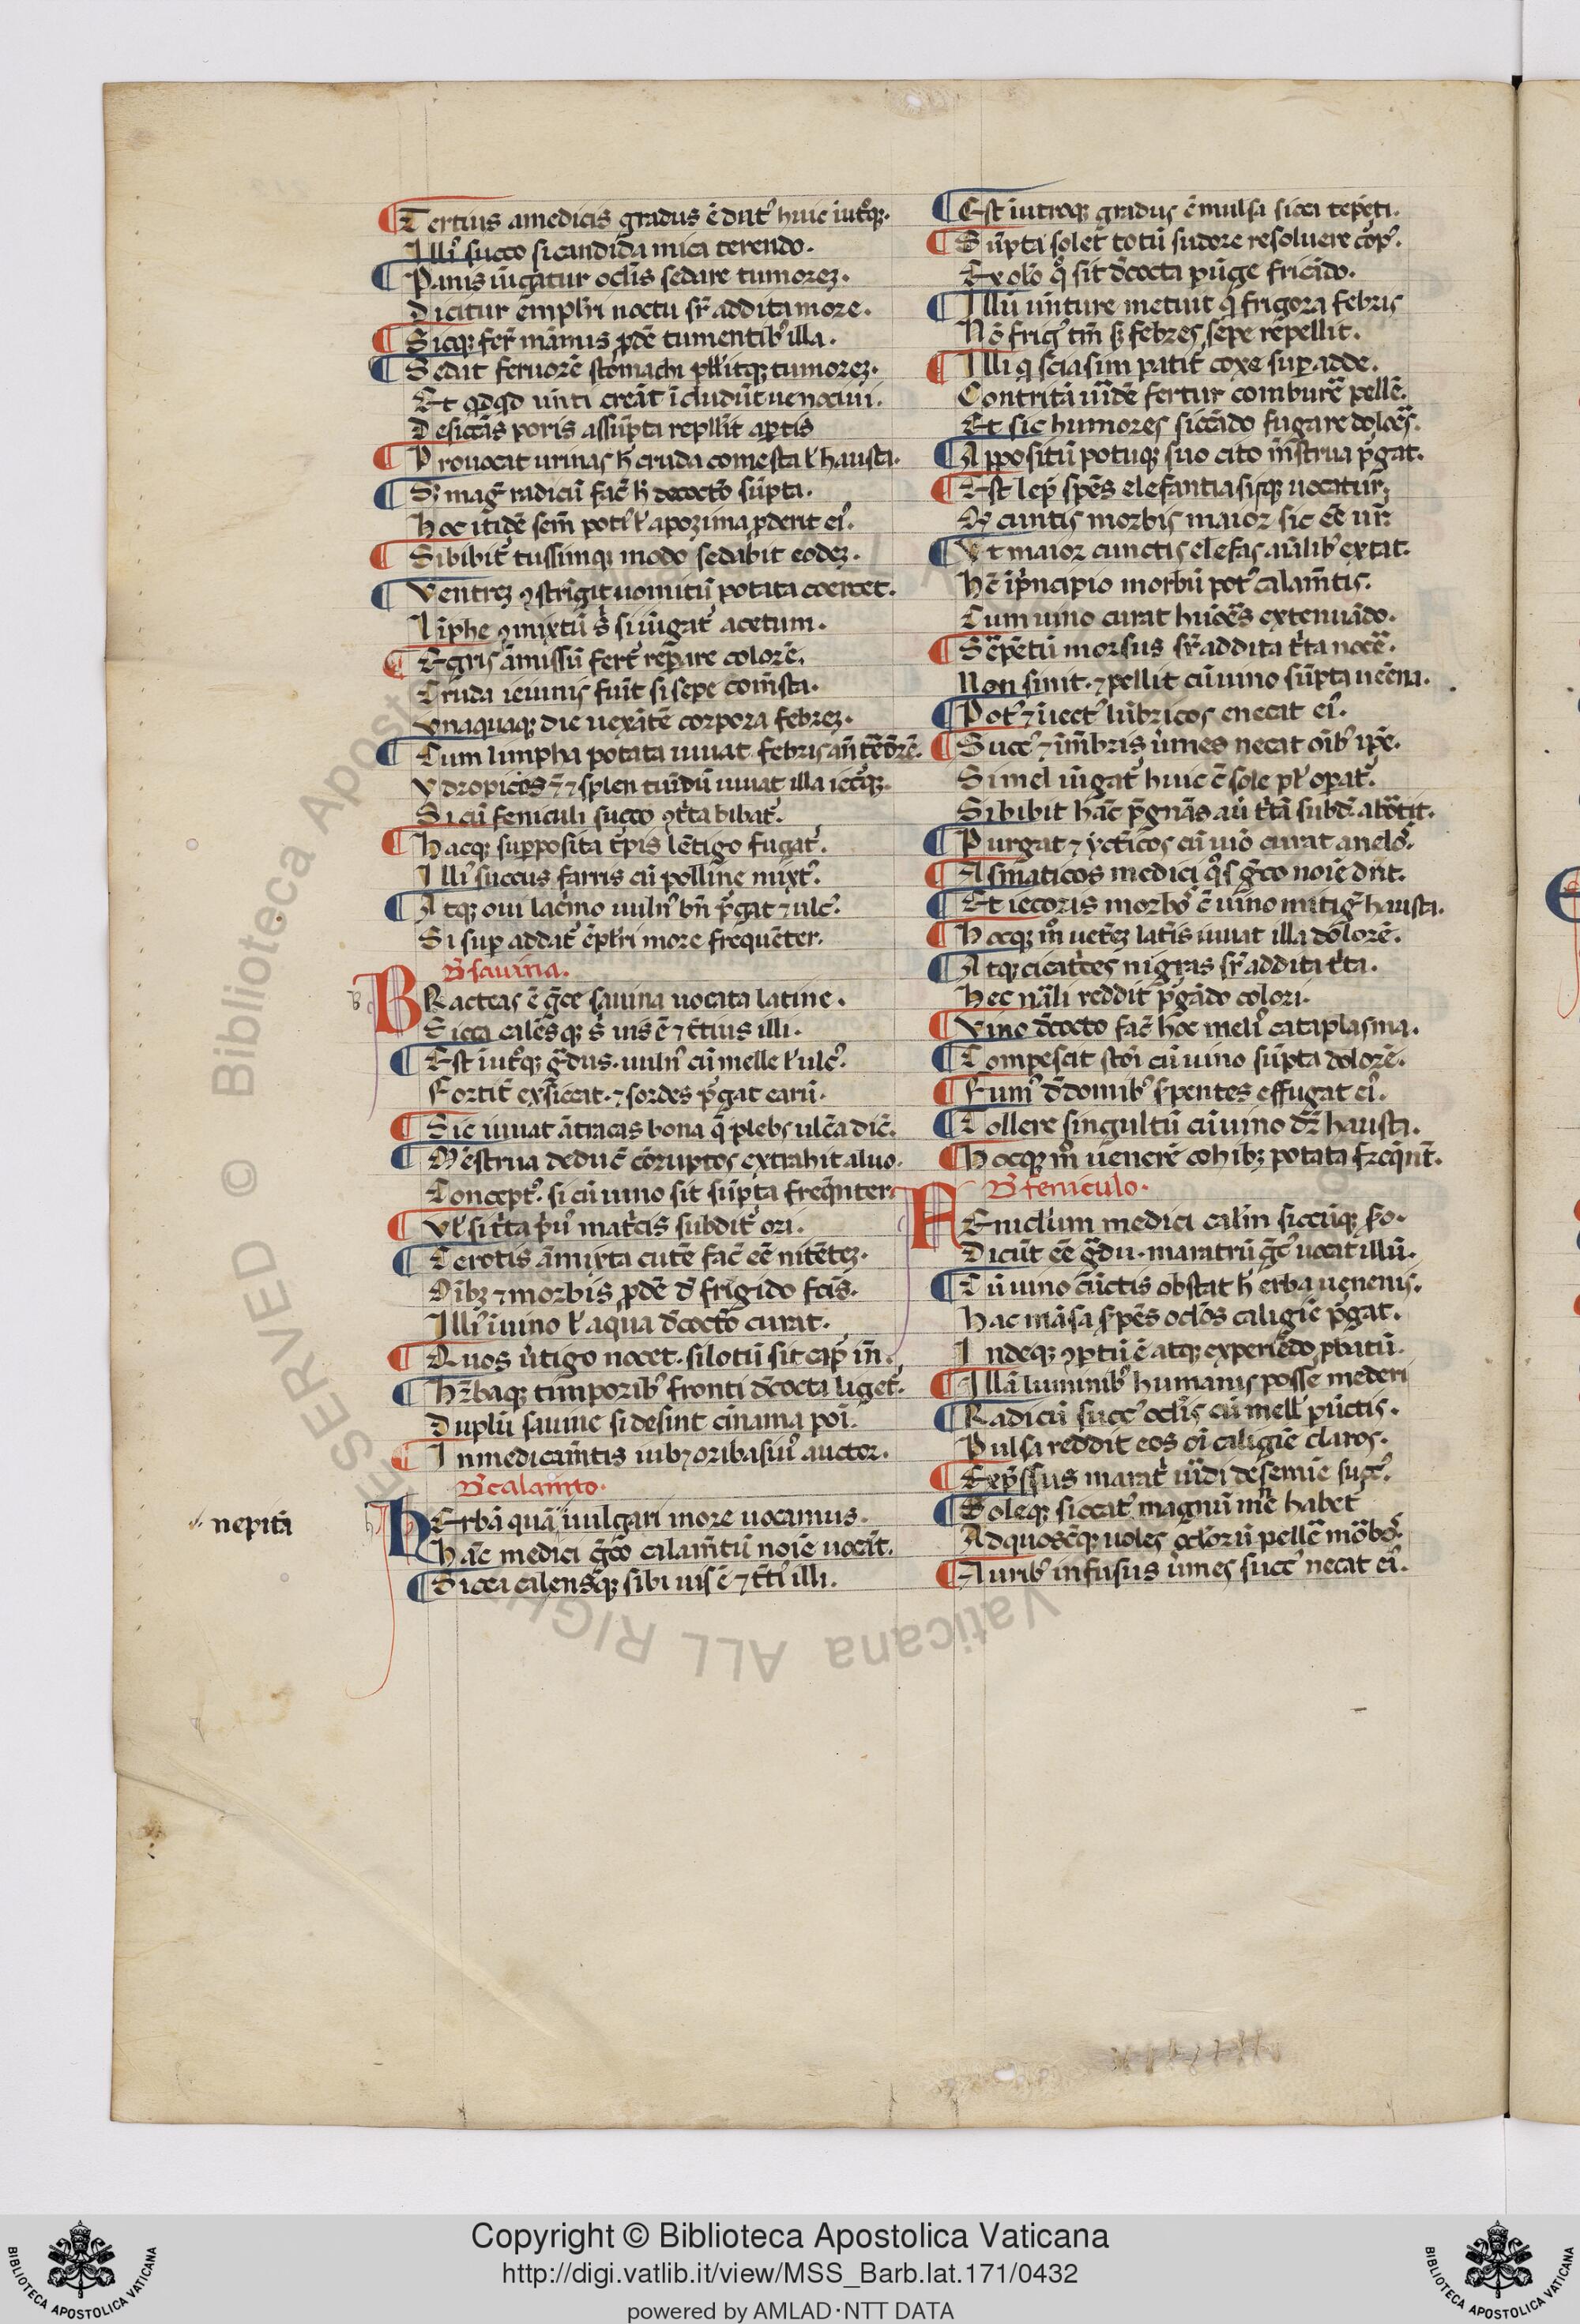 Tertius a medicis gradus ē dnt᷒ huic iutͦqꝫ.
Illi᷒ succo si candida mica terendo.
Panis iūgatur oclīs sedare tumoreꝫ.
Dicitur emplr̄i noctu sr̄ addita more.
Sicqꝫ fer̄ māmis ꝓdē tumentib᷒ illa.
Sedat feruorē stomachi pellitqꝫ tumoreꝫ.
Desiccās poris assūpta repllīt aptis
Prouocat urinas h̄ cruda comesta ł hausta.
Sꝫ maḡ radicū fac̄ h̄ decoctō sūpta.
Hoc itidē sem̄ pot᷒ ł apozima ꝓderit ei᷒.
Si bibit᷒ tussimqꝫ modo sedabit eodeꝫ.
Ventreꝫ ꝯstrīgit uomitū potata coercet.
Liphe ꝯmixtū s̄ si iūgat᷒ acetum.
Egris āmissū fert᷒ reꝑare colorē.
Cruda ieiunis fuīt si sepe comēsta.
Vnaquaqꝫ die uexātē corpora febreꝫ.
Cum limpha potata iuuat febris
Si cū feniculi succo ꝯtͥta bibat᷒.
Hacqꝫ supposita lētigo fugat᷒.
Illi᷒ succus farris cū polline mixt᷒.
Si sup addat᷒ ēplr̄i more frequēter.
℞ sauina.
BRacteas ē gͣce sauina uocata latine.
Sicca calēsqꝫ s̄ uis ē ⁊ t̄tius illi.
Est iūtͦqꝫ gͣdus. uuln᷒ cū melle ł ulc᷒.
Fortit᷒ exsiccat. ⁊ sordes pͥgat earū.
Sic iuuat ātracas bona q̄ plebs ulc̄a dic̄.
Mēstrua deduc̄ corruptos extrahit aluo.
Concept᷒. si cū uino sit sūpta freqͣnter
Vł si tͥta pͥu᷒ matͥcis subdit᷒ ori.
Cerotis āmixta cutē fac̄ eē nitēteꝫ.
Oībꝫ ⁊ morbis ꝓdē d̄ frigido fcīs.
Illi᷒ ī uino ł aqua dcoctō curat.
Quos ūtigo nocet. si lotū sit cap᷒ in.
Hr̄baqꝫ timporib᷒ fronti dcocta liget᷒.
Duplū sauine si desint cinama poī.
In medicamītis iubꝫ oribasiu᷒ auctor.
℞ calamto.
nepitā
HErbā quā uulgari more uocamus.
Hāc medici gͣco calamītū noīe uocāt.
Sicca calensqꝫ sibi uis ē ⁊ t̄ti᷒ illi.
Est iutroqꝫ gradus ē mulsa sicca tepeti.
Sūpta solet totū sudore resoluere corp᷒.
Ex oleo qͦ sit dcocta pūge fricādo.
Illū uīture metuit qͥ frigora febris
Nō frig᷒ tm̄ sꝫ febres sepe repellit.
Illi qͥ sciasim patit᷒ coxe sup adde.
Contritā uͥidē fertur comburē pellē.
Et sic humores siccādo fugare dolores.
Appositū potuqꝫ suo cito mīstrua pͥgat.
Est lep̄ spēs elefantiasisqꝫ uocatur
Vt maior cunctis elefas aīalib᷒ extat.
Hc̄ ī pͥncipio morbū pot᷒ calamītis.
Cum uino curat huīores extenuādo.
Serpētū morsus sr̄ addita tͥta nocē.
Non sinit. ⁊ pellit cū uino sūpta uenēna.
Pot᷒ ⁊ īiect᷒ lūbricos enecat ei᷒.
Succ᷒ ⁊ imbris ūmes necat oīb᷒ ipē.
Si mel iūgat᷒ huic ē sole pł opat᷒.
Si bibit hāc pͥgnās aū tͥta subdr̄ abōtit.
Purgat ⁊ yctͥicos cū uīo curat anelo᷒.
Asmaticos medici qͦs gͣco noīe dnt.
Et iecoris morbo᷒ ē uino mitig̃ hausta.
Hocqꝫ mͦ ueteꝫ latͥis iuuat illa dolorē.
Atqꝫ cicatͥces nigras sr̄ addita tͥta.
Hec nāli reddit pͥgādo colori.
Vino dcocto fac̄ hoc meli᷒ cataplasma.
Compescit stōi cū uino sūpta dolorē.
Fum᷒ d̄ domib᷒ sꝑentes effugat ei᷒.
Tollere singultū cū uino dr̄ hausta.
Hocqꝫ mͦ uenerē cohibꝫ potata freqͣnt᷒.
℞ feniculo.
FEniclum medici calīn siccūqꝫ sc̄o.
Dicūt eē gͣdu. maratrū gͣc᷒ uocat illū.
Cū uino cūctis obstat h̄ erba uenenis.
Hac māsa sꝑēs oclōs caligīe pͥgat.
Indeqꝫ ꝯꝑtū ē atqꝫ experiēdo ꝓbatū.
Illā luminib᷒ humanis posse mederi
Radicū succ᷒ oclīs cū mell᷒ pūctis.
Pulsa reddit eos oī caligīe claros.
Expͥssus marat᷒ uͥidi de semīe succ᷒.
Soleqꝫ siccat᷒ magnū mͥtē habet᷒
Ad quoscūqꝫ uoles oclōrū pellē morbo᷒.
Aurib᷒ infusus ūmes succ᷒ necat ei᷒.
Copyright © Biblioteca Apostolica Vaticana
http://digi.vatlib.it/view/MSS_Barb.lat.171/0432
powered by AMLAD·NTT DATA